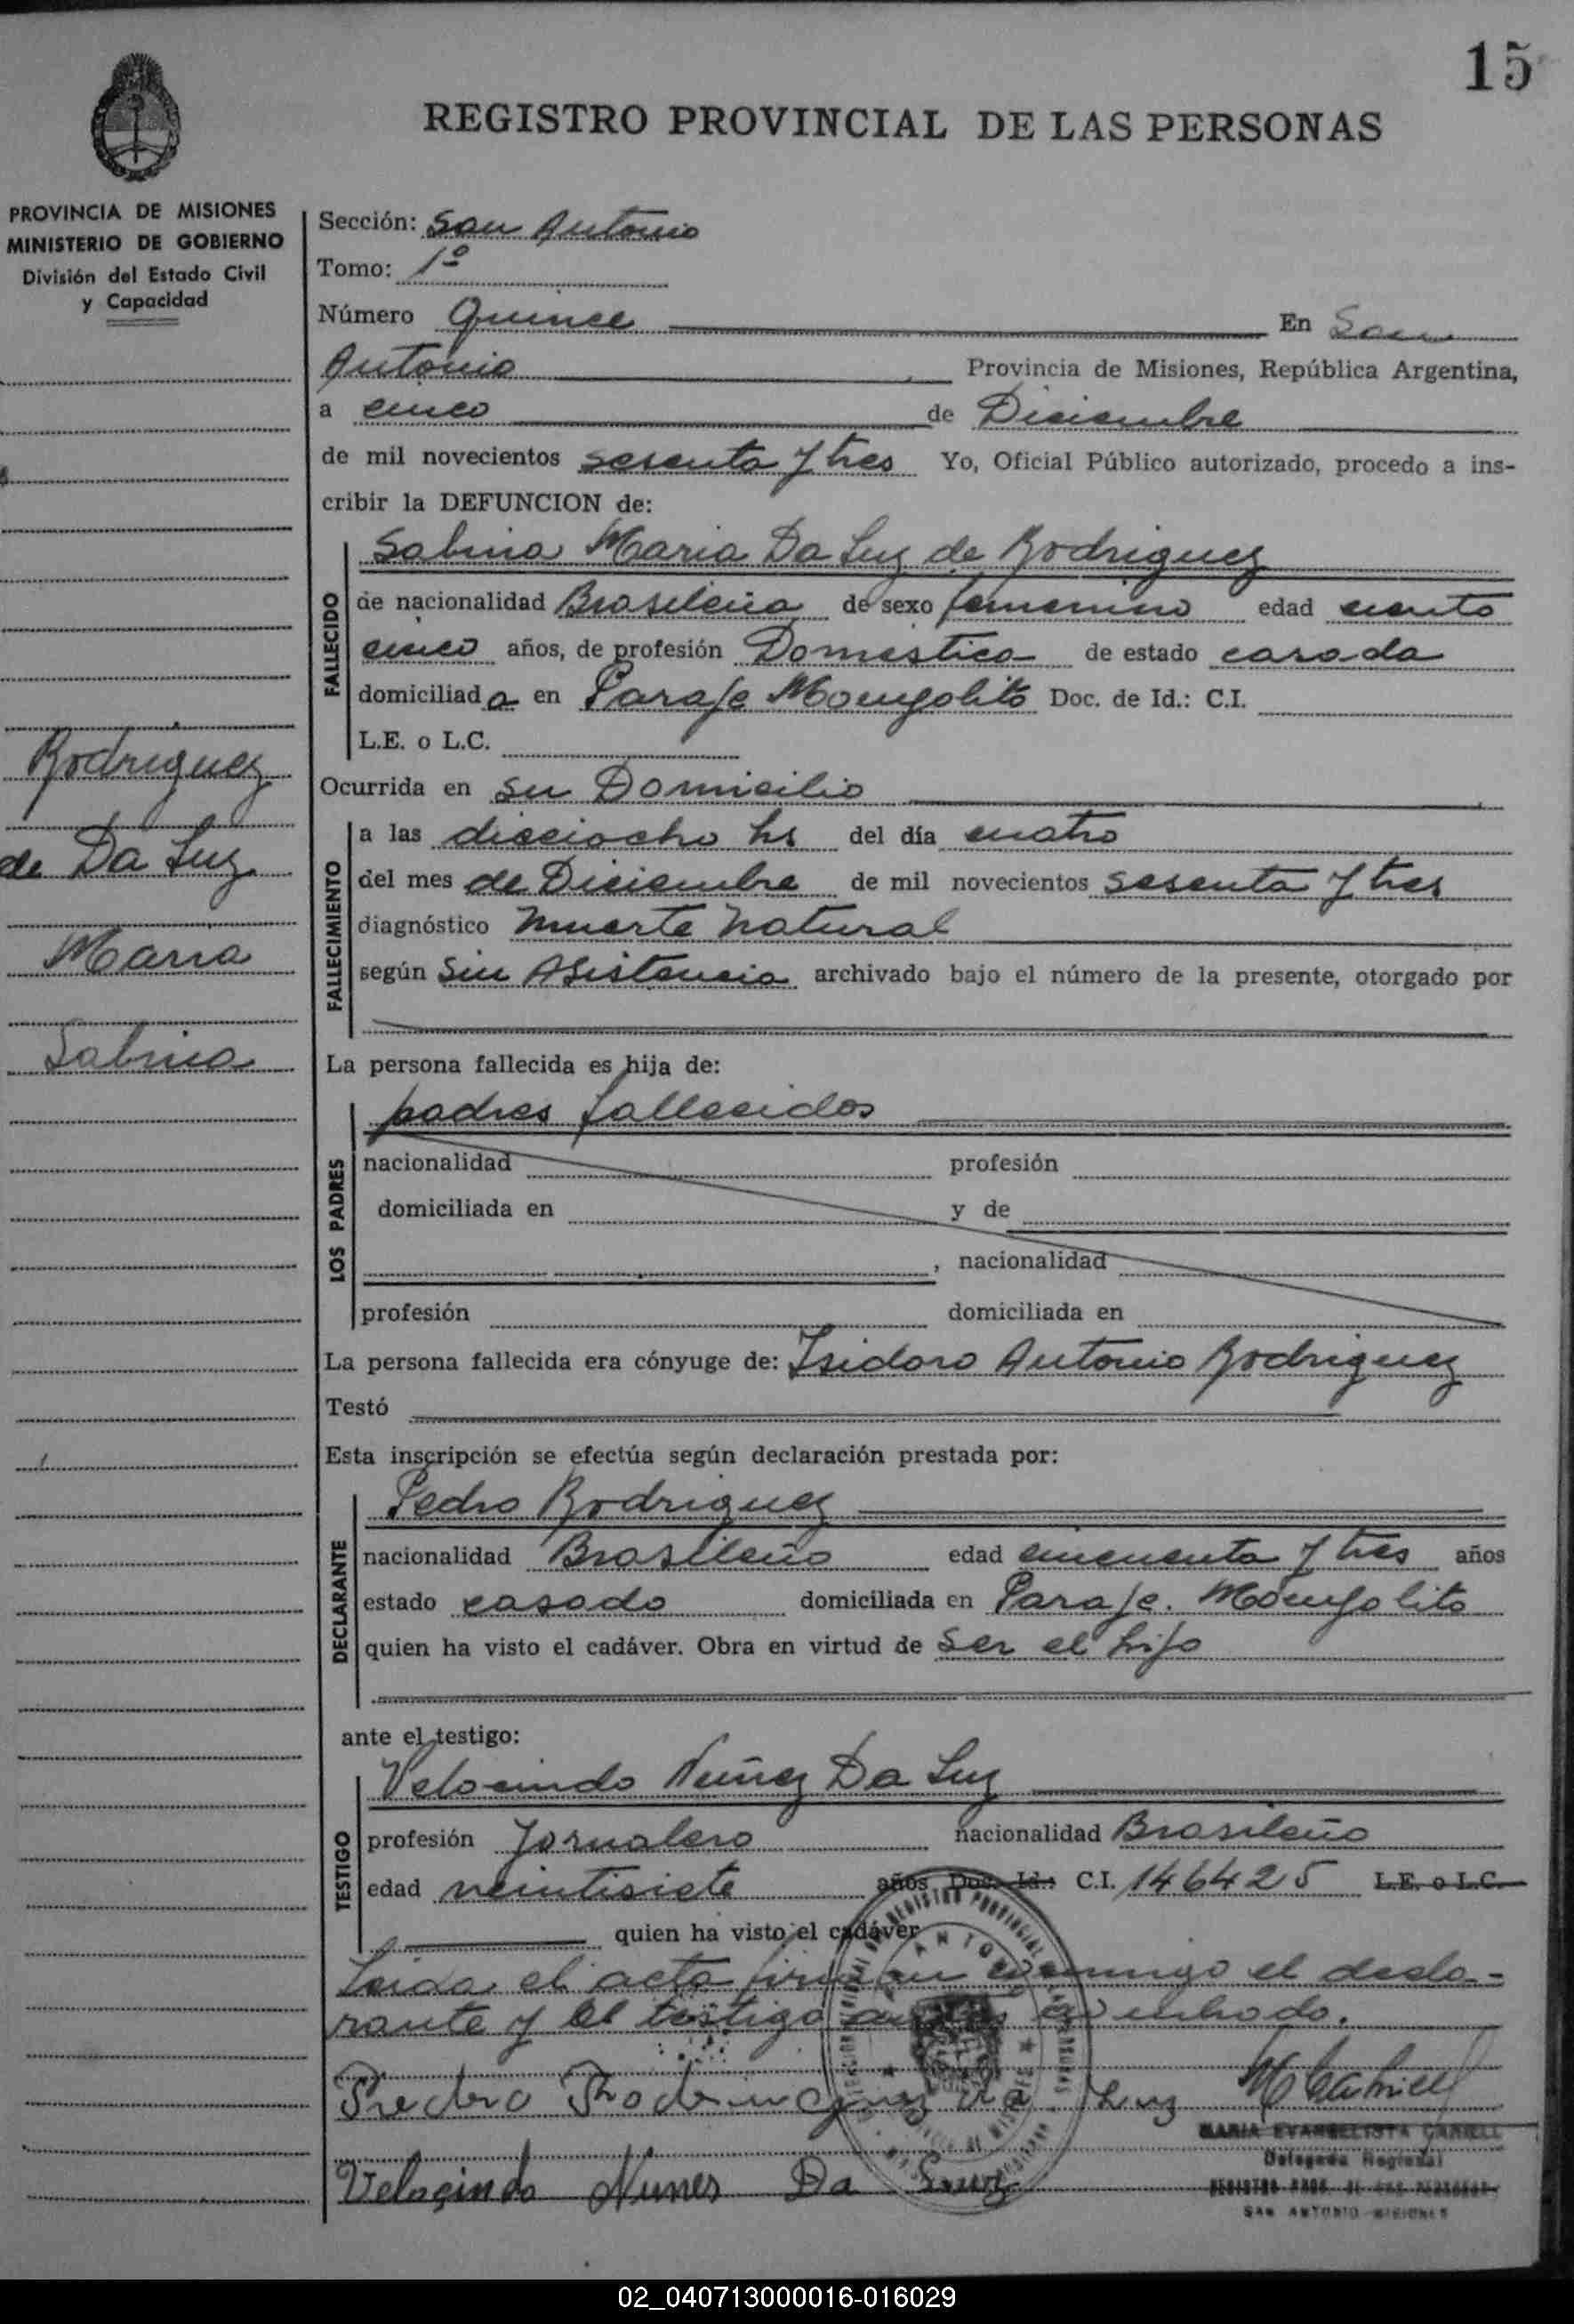 15
REGISTRO PROVINCIAL DE LAS PERSONAS
PROVINCIA DE MISIONES
MINISTERIO DE GOBIERNO
División del Estado Civil
y Capacidad
Rodriguez
de Da Luz
Maria
Sabina
Sección: San Antonio
Tomo: 1º
Número Quince En San
Antonio Provincia de Misiones, República Argentina,
a cinco de Diciembre
de mil novecientos sesenta y tres Yo, Oficial Público autorizado, procedo a ins-
cribir la DEFUNCION de:
Sabina Maria Da Luz de Rodriguez
FALLECIDO
de nacionalidad Brasileña de sexo femenino edad ciento
cinco años, de profesión Domestica de estado casada
domiciliada en Paraje Mongolito Doc. de Id.: C.I.
L.E. o L.C.
Ocurrida en su Domicilio
FALLECIMIENTO
a las dieciocho hs del día cuatro
del mes de Diciembre de mil novecientos sesenta y tres
diagnóstico muerte natural
según Sin Asistencia archivado bajo el número de la presente, otorgado por
La persona fallecida es hija de:
LOS PADRES
padres fallecidos
nacionalidad profesión
domiciliada en y de
, nacionalidad
profesión domiciliada en
La persona fallecida era cónyuge de: Isidoro Antonio Rodriguez
Testó
Esta inscripción se efectúa según declaración prestada por:
DECLARANTE
Pedro Rodriguez
nacionalidad Brasileño edad cincuenta y tres años
estado casado domiciliada en Paraje. Mongolito
quien ha visto el cadáver. Obra en virtud de ser el hijo
ante el testigo:
TESTIGO
Velocindo Nuñez Da Luz
profesión Jornalero nacionalidad Brasileño
edad veintisiete años Doc. Id.: C.I. 146425 L.E. o L.C.
quien ha visto el cadáver
Leida el acta firman conmigo el decla-
rante y el testigo antes nombrado.
Pedro Rodriguez da Luz
MARIA EVANGELISTA CARIELL
Delegada Regional
SAN ANTONIO - MISIONES
Velocindo Nunes Da Luz
02_040713000016-016029